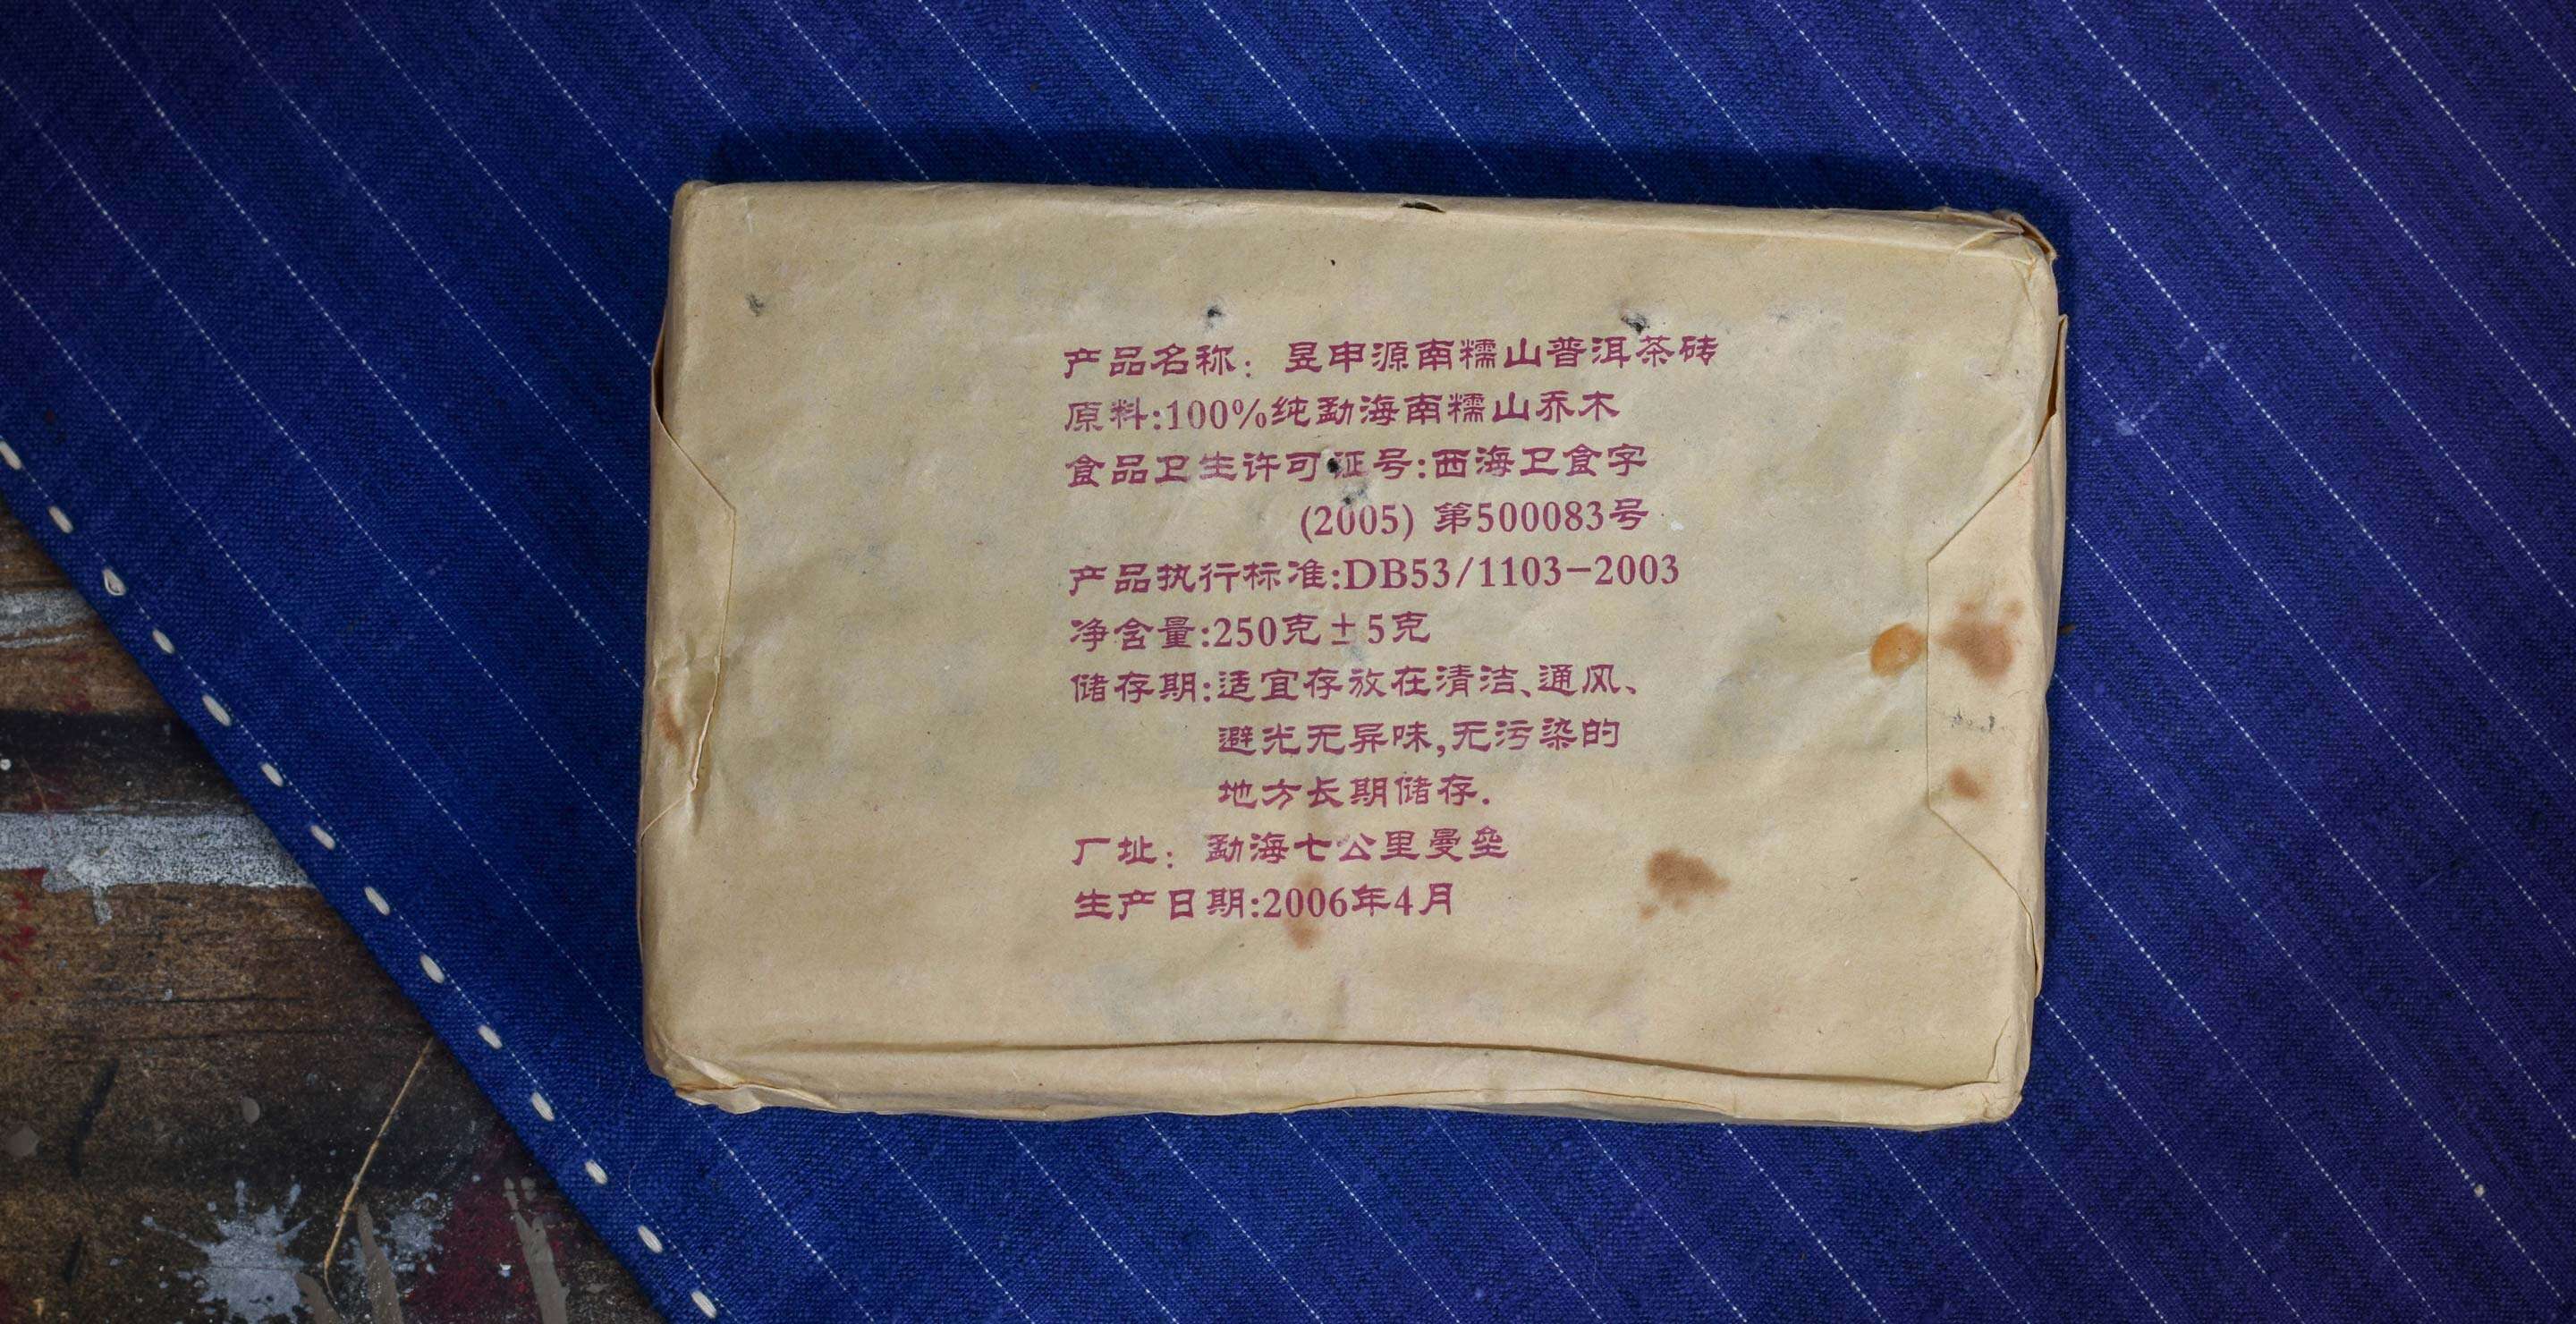 产品名称：昱申源南糯山普洱茶砖
原料:100%纯勐海南糯山乔木
食品卫生许可证号:西海卫食字
(2005) 第500083号
产品执行标准:DB53/1103-2003
净含量:250克±5克
储存期:适宜存放在清洁、通风、
避光无异味,无污染的
地方长期储存.
厂址：勐海七公里曼垒
生产日期:2006年4月